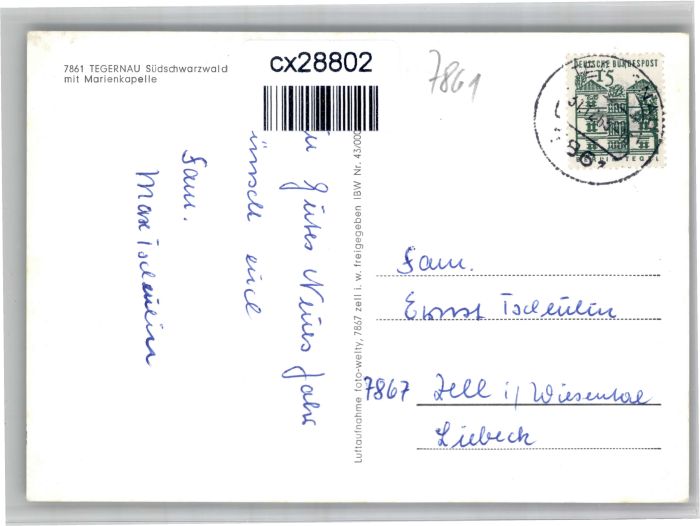 7861 TEGERNAU Südschwarzwald
mit Marienkapelle
cx28802
7861
DEUTSCHE BUNDESPOST
15
BERLIN TEGEL
Gutes Neues Jahr
wünscht euch
Fam.
Max Tscheulin
Luftaufnahme foto-welty, 7867 zell i. w. freigegeben IBW Nr. 43/000
Fam.
Ernst Tscheulin
7867 Zell i/ Wiesental
Liebeck